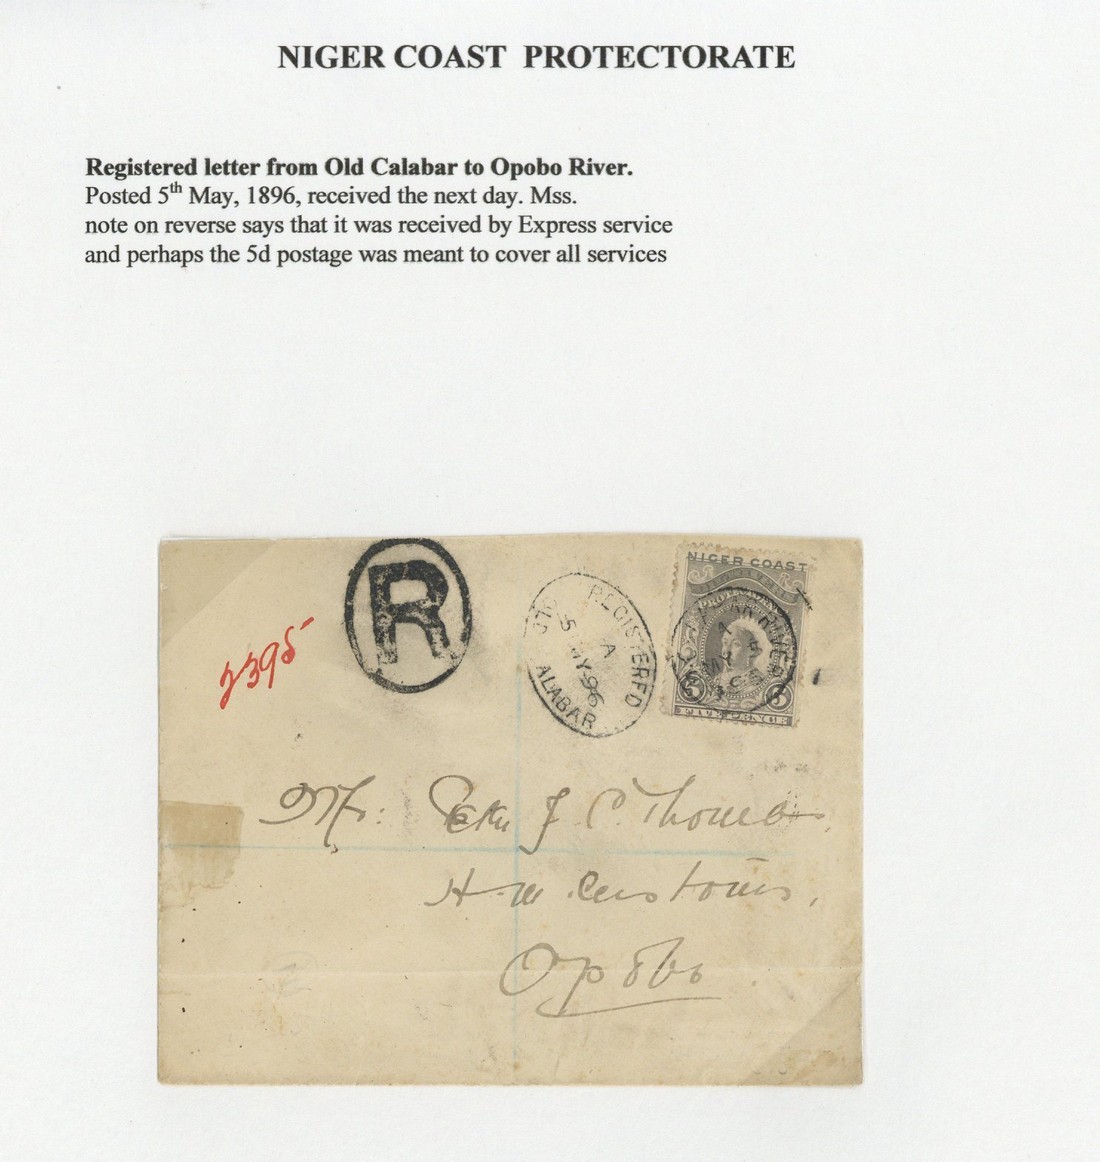 NIGER COAST PROTECTORATE
Registered letter from Old Calabar to Opobo River.
Posted 5th May, 1896, received the next day. Mss.
note on reverse says that it was received by Express service
and perhaps the 5d postage was meant to cover all services
R
2395
REGISTERED
A
5 MY 96
OLD CALABAR
NIGER COAST
PROTECTORATE
MY 5
5 5
FIVE PENCE
Mr: Peter J C. Thomas,
H. M. Customs,
Opobo